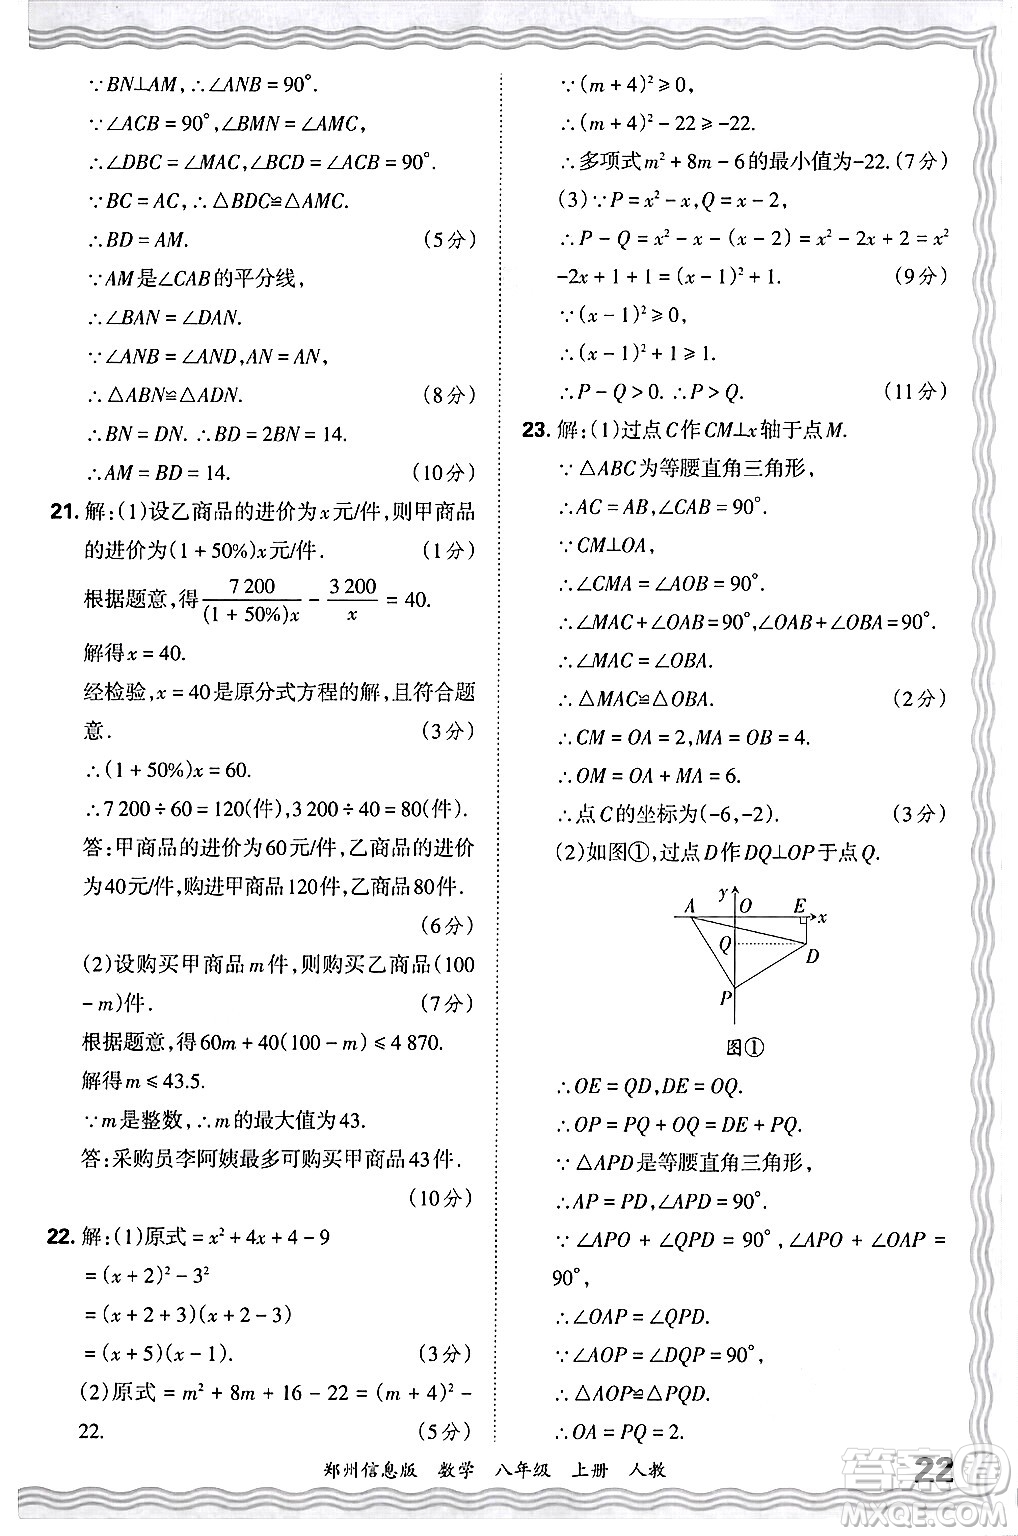 ∵BN⊥AM,∴∠ANB=90°.
∵∠ACB=90°,∠BMN=∠AMC,
∴∠DBC=∠MAC,∠BCD=∠ACB=90°.
∵BC=AC,∴△BDC≌△AMC.
∴BD=AM. (5分)
∵AM是∠CAB的平分线,
∴∠BAN=∠DAN.
∵∠ANB=∠AND,AN=AN,
∴△ABN≌△ADN. (8分)
∴BN=DN.∴BD=2BN=14.
∴AM=BD=14. (10分)
21.解:(1)设乙商品的进价为x元/件,则甲商品
的进价为(1+50%)x元/件. (1分)
根据题意,得7 200/(1+50%)x-3 200/x=40.
解得x=40.
经检验,x=40是原分式方程的解,且符合题
意. (3分)
∴(1+50%)x=60.
∴7 200÷60=120(件),3 200÷40=80(件).
答:甲商品的进价为60元/件,乙商品的进价
为40元/件,购进甲商品120件,乙商品80件.
(6分)
(2)设购买甲商品m件,则购买乙商品(100
-m)件. (7分)
根据题意,得60m+40(100-m)≤4 870.
解得m≤43.5.
∵m是整数,∴m的最大值为43.
答:采购员李阿姨最多可购买甲商品43件.
(10分)
22.解:(1)原式=x²+4x+4-9
=(x+2)²-3²
=(x+2+3)(x+2-3)
=(x+5)(x-1). (3分)
(2)原式=m²+8m+16-22=(m+4)²-
22. (5分)
∵(m+4)²≥0,
∴(m+4)²-22≥-22.
∴多项式m²+8m-6的最小值为-22.(7分)
(3)∵P=x²-x,Q=x-2,
∴P-Q=x²-x-(x-2)=x²-2x+2=x²
-2x+1+1=(x-1)²+1. (9分)
∵(x-1)²≥0,
∴(x-1)²+1≥1.
∴P-Q>0.∴P>Q. (11分)
23.解:(1)过点C作CM⊥x轴于点M.
∵△ABC为等腰直角三角形,
∴AC=AB,∠CAB=90°.
∵CM⊥OA,
∴∠CMA=∠AOB=90°.
∴∠MAC+∠OAB=90°,∠OAB+∠OBA=90°.
∴∠MAC=∠OBA.
∴△MAC≌△OBA. (2分)
∴CM=OA=2,MA=OB=4.
∴OM=OA+MA=6.
∴点C的坐标为(-6,-2). (3分)
(2)如图①,过点D作DQ⊥OP于点Q.
y
A O E x
Q
D
P
图①
∴OE=QD,DE=OQ.
∴OP=PQ+OQ=DE+PQ.
∵△APD是等腰直角三角形,
∴AP=PD,∠APD=90°.
∵∠APO+∠QPD=90°,∠APO+∠OAP=
90°,
∴∠OAP=∠QPD.
∵∠AOP=∠DQP=90°,
∴△AOP≌△PQD.
∴OA=PQ=2.
郑州信息版 数学 八年级 上册 人教
22
答案圈
MXQE.COM